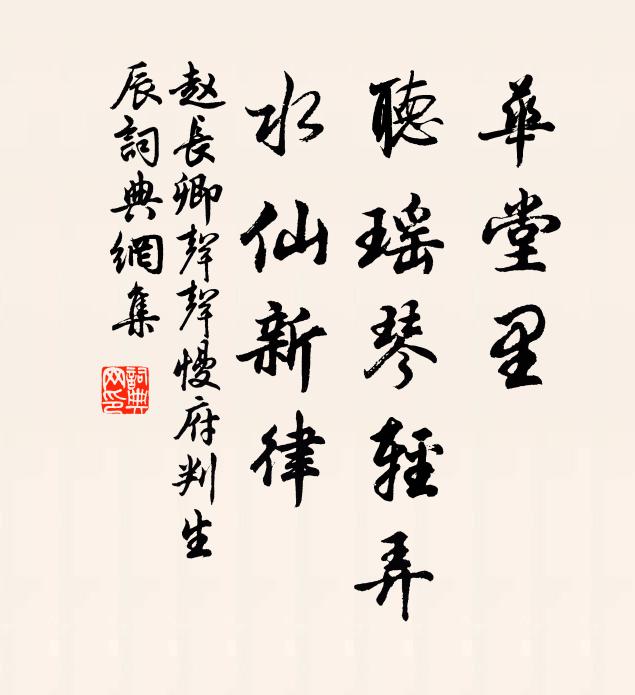 華堂里
聽瑶琴輕弄
水仙新律
赵長卿聲聲慢府判生
辰詞典網集
詞典網印